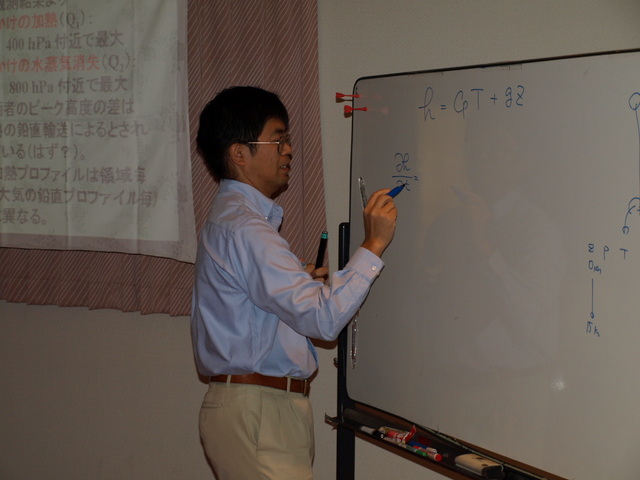 観測結果より
かけの加熱(Q₁):
400 hPa 付近で最大
かけの水蒸気消失(Q₂):
800 hPa 付近で最大
両者のピーク高度の差は
の鉛直輸送によるとされ
ている(はず?)。
加熱プロファイルは領域毎
大気の鉛直プロファイル毎)
異なる。
h = CpT + gz
∂h/∂t =
z p T
0m